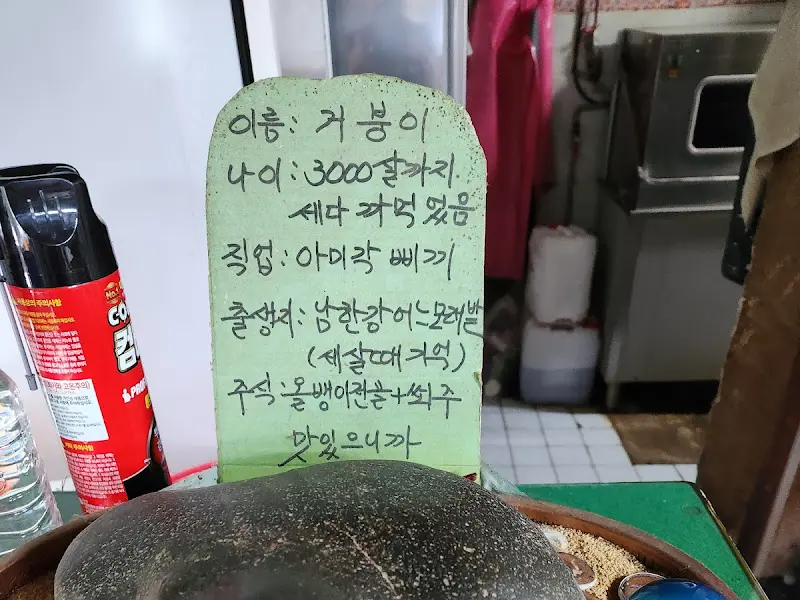 이름: 거북이
나이: 3000살까지
세다 까먹었음
직업: 아미각 삐끼
출생지: 남한강 어느 모래밭
(세살때 기억)
주식: 올뱅이전골+쐬주
맛있으니까